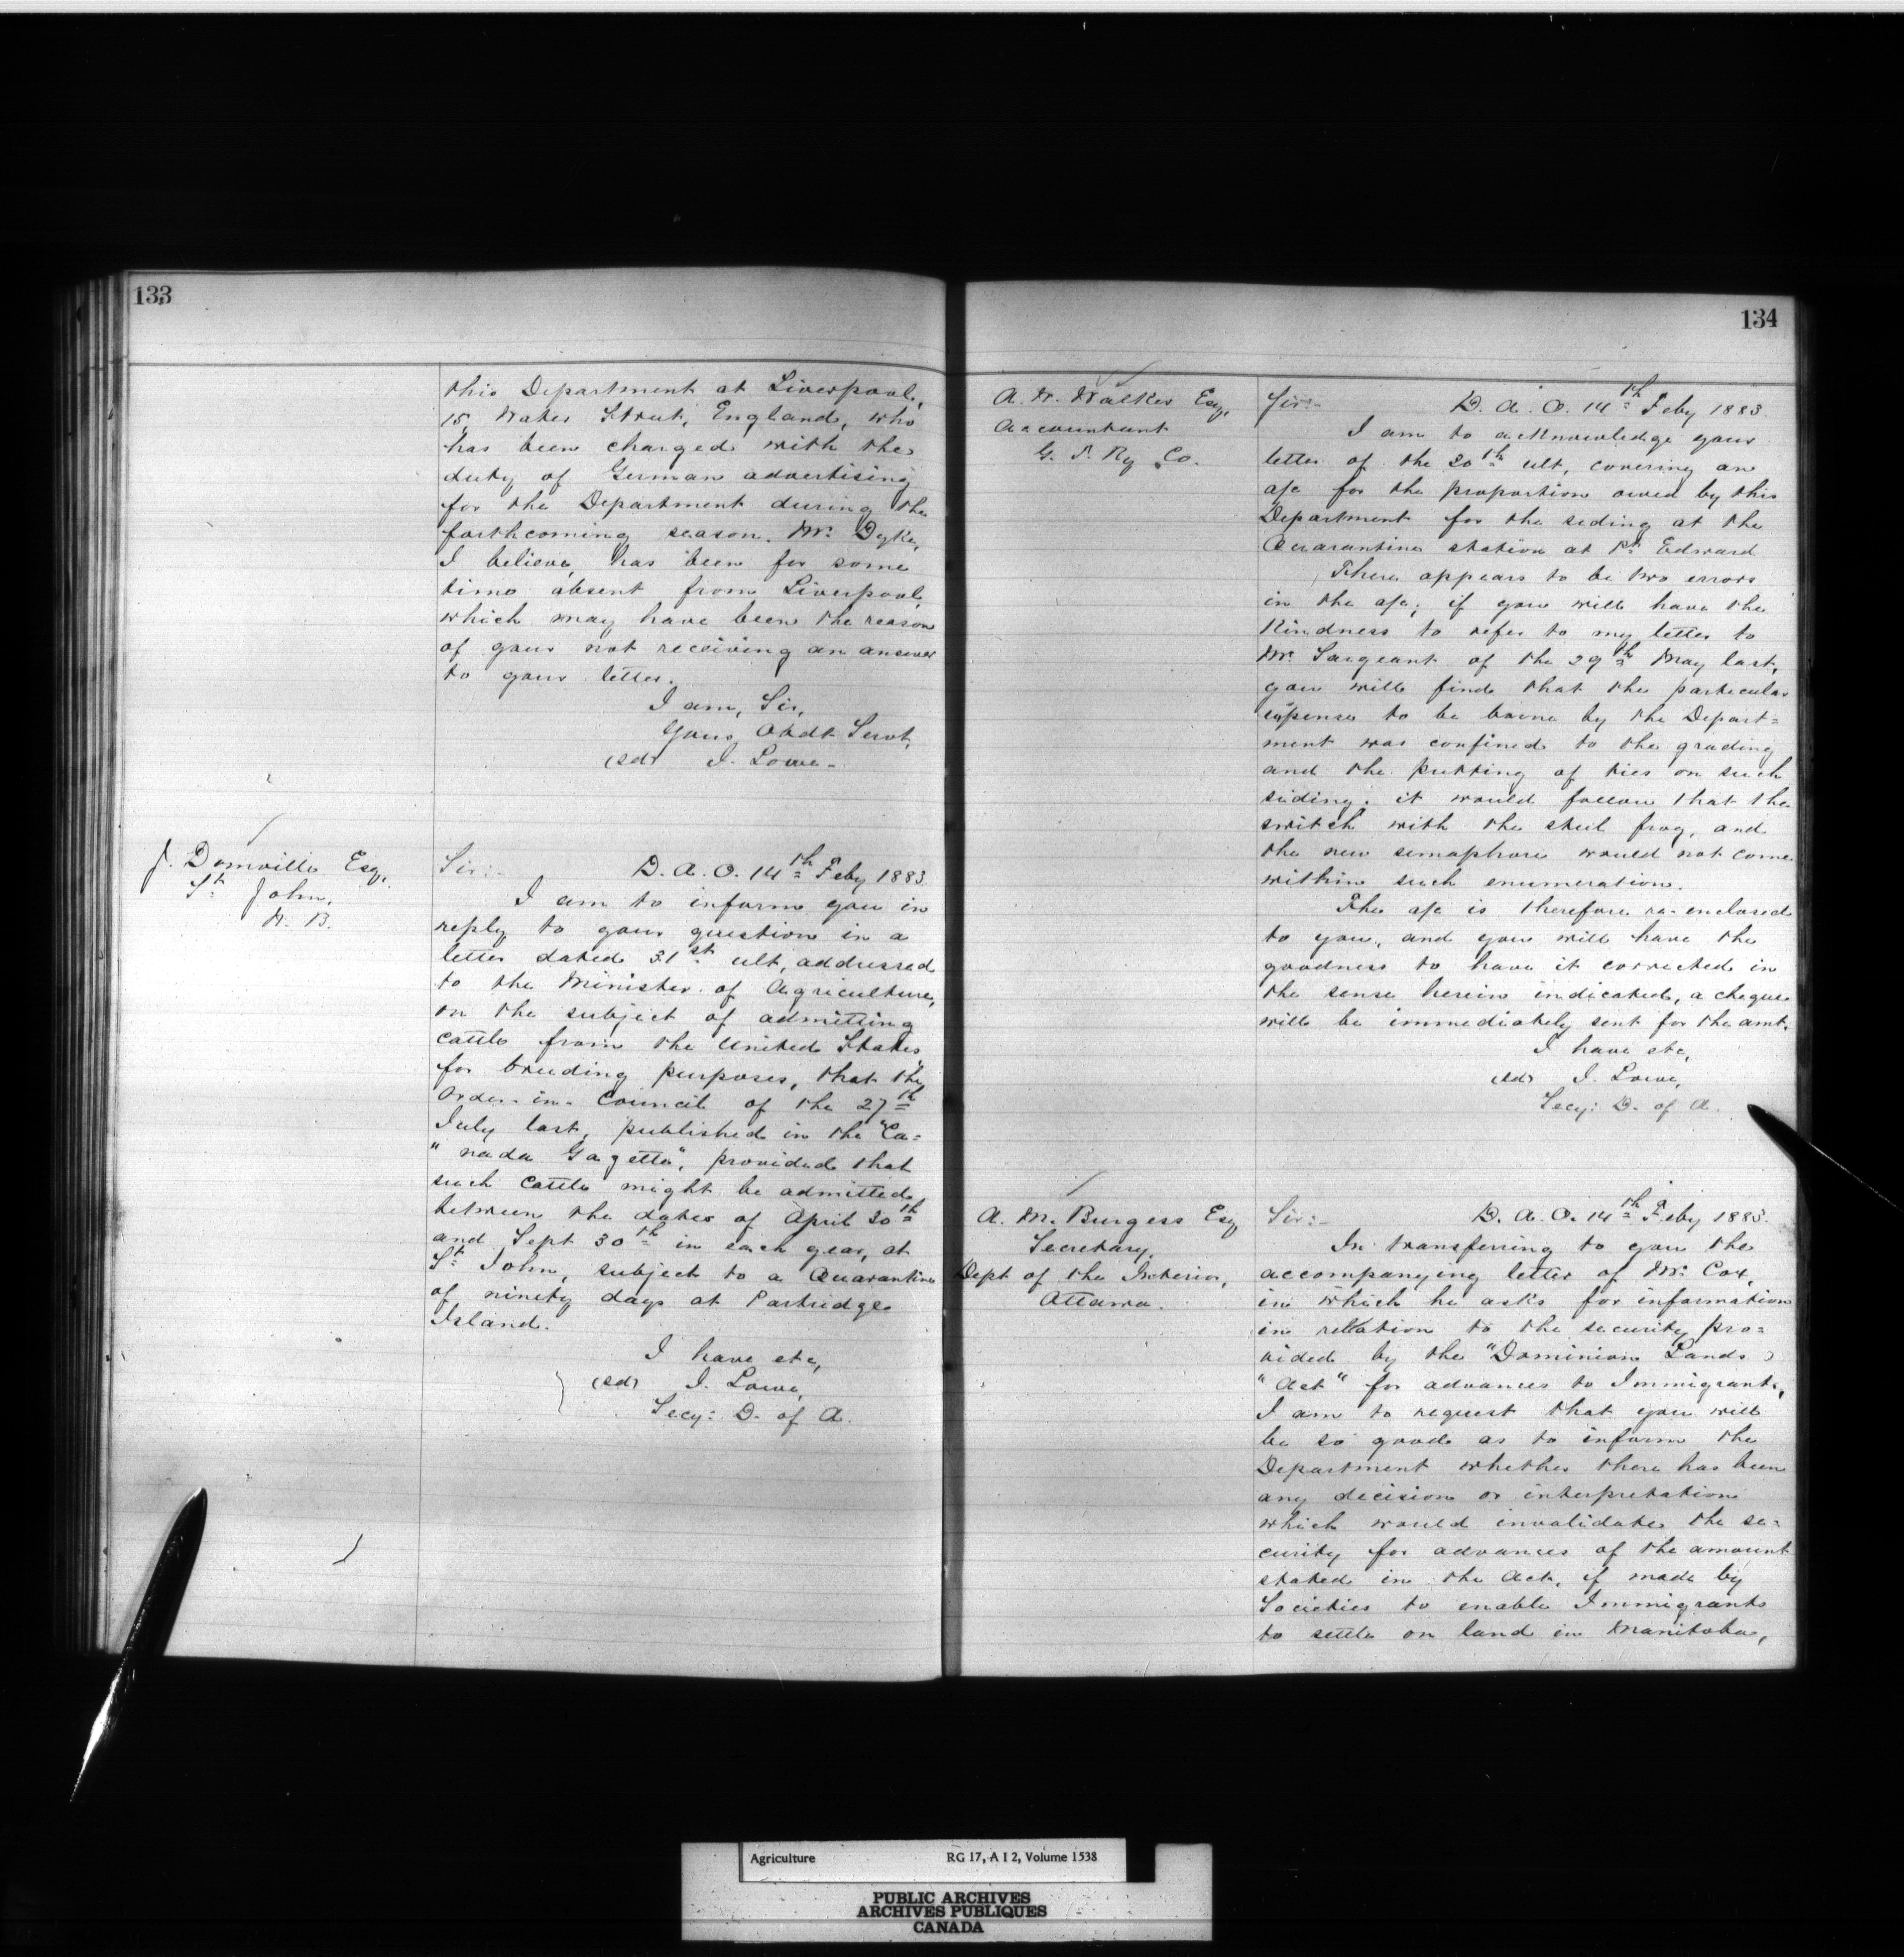 133
this Department at Liverpool,
15, Water Street, England, who
has been charged with the
duty of German advertising
for the Department during the
forthcoming season. Mr. Dyke,
I believe, has been for some
time absent from Liverpool,
which may have been the reason
of your not receiving an answer
to your letter.
I am, Sir,
Your Obdt Servt,
(sd) J. Lowe.
J. Domville Esq,
St. John,
N. B.
Sir:- D. A. O. 14th Feby 1883
I am to inform you in
reply to your question in a
letter dated 31st ult, addressed
to the Minister of Agriculture,
on the subject of admitting
cattle from the United States,
for breeding purposes, that the
Order-in-Council of the 27th
July last, published in the "Ca=
"nada Gazette", provided that
such cattle might be admitted
between the dates of April 30th
and Sept 30th in each year, at
St. John, subject to a Quarantine
of ninety days at Partridge
Island.
I have etc,
(sd) J. Lowe,
Secy: D. of A.
134
A. W. Walker Esq,
Accountant
G. T. Ry Co.
Sir:- D. A. O. 14th Feby 1883.
I am to acknowledge your
letter of the 20th ult, covering an
a/c for the proportion owed by this
Department for the siding at the
Quarantine station at Pt Edward
There appears to be two errors
in the a/c; if you will have the
kindness to refer to my letter to
Mr. Sargeant of the 29th May last,
you will find that the particular
expense to be borne by the Depart=
ment was confined to the grading
and the putting of ties on such
siding. it would follow that the
switch with the steel frog, and
the new semaphore would not come
within such enumeration.
The a/c is therefore re-enclosed
to you, and you will have the
goodness to have it corrected in
the sense herein indicated, a cheque
will be immediately sent for the amt.
I have etc,
(sd) J. Lowe,
Secy: D. of A.
A. M. Burgess Esq
Secretary,
Dept of the Interior,
Ottawa.
Sir:- D. A. O. 14th Feby 1883.
In transferring to you the
accompanying letter of Mr. Cox,
in which he asks for information
in relation to the security pro=
vided by the "Dominion Lands
"Act" for advances to Immigrants,
I am to request that you will
be so good as to inform the
Department whether there has been
any decision or interpretation
which would invalidate the se=
curity for advances of the amount
stated in the Act, if made by
Societies to enable Immigrants
to settle on land in Manitoba,
Agriculture RG 17, A I 2, Volume 1538
PUBLIC ARCHIVES
ARCHIVES PUBLIQUES
CANADA